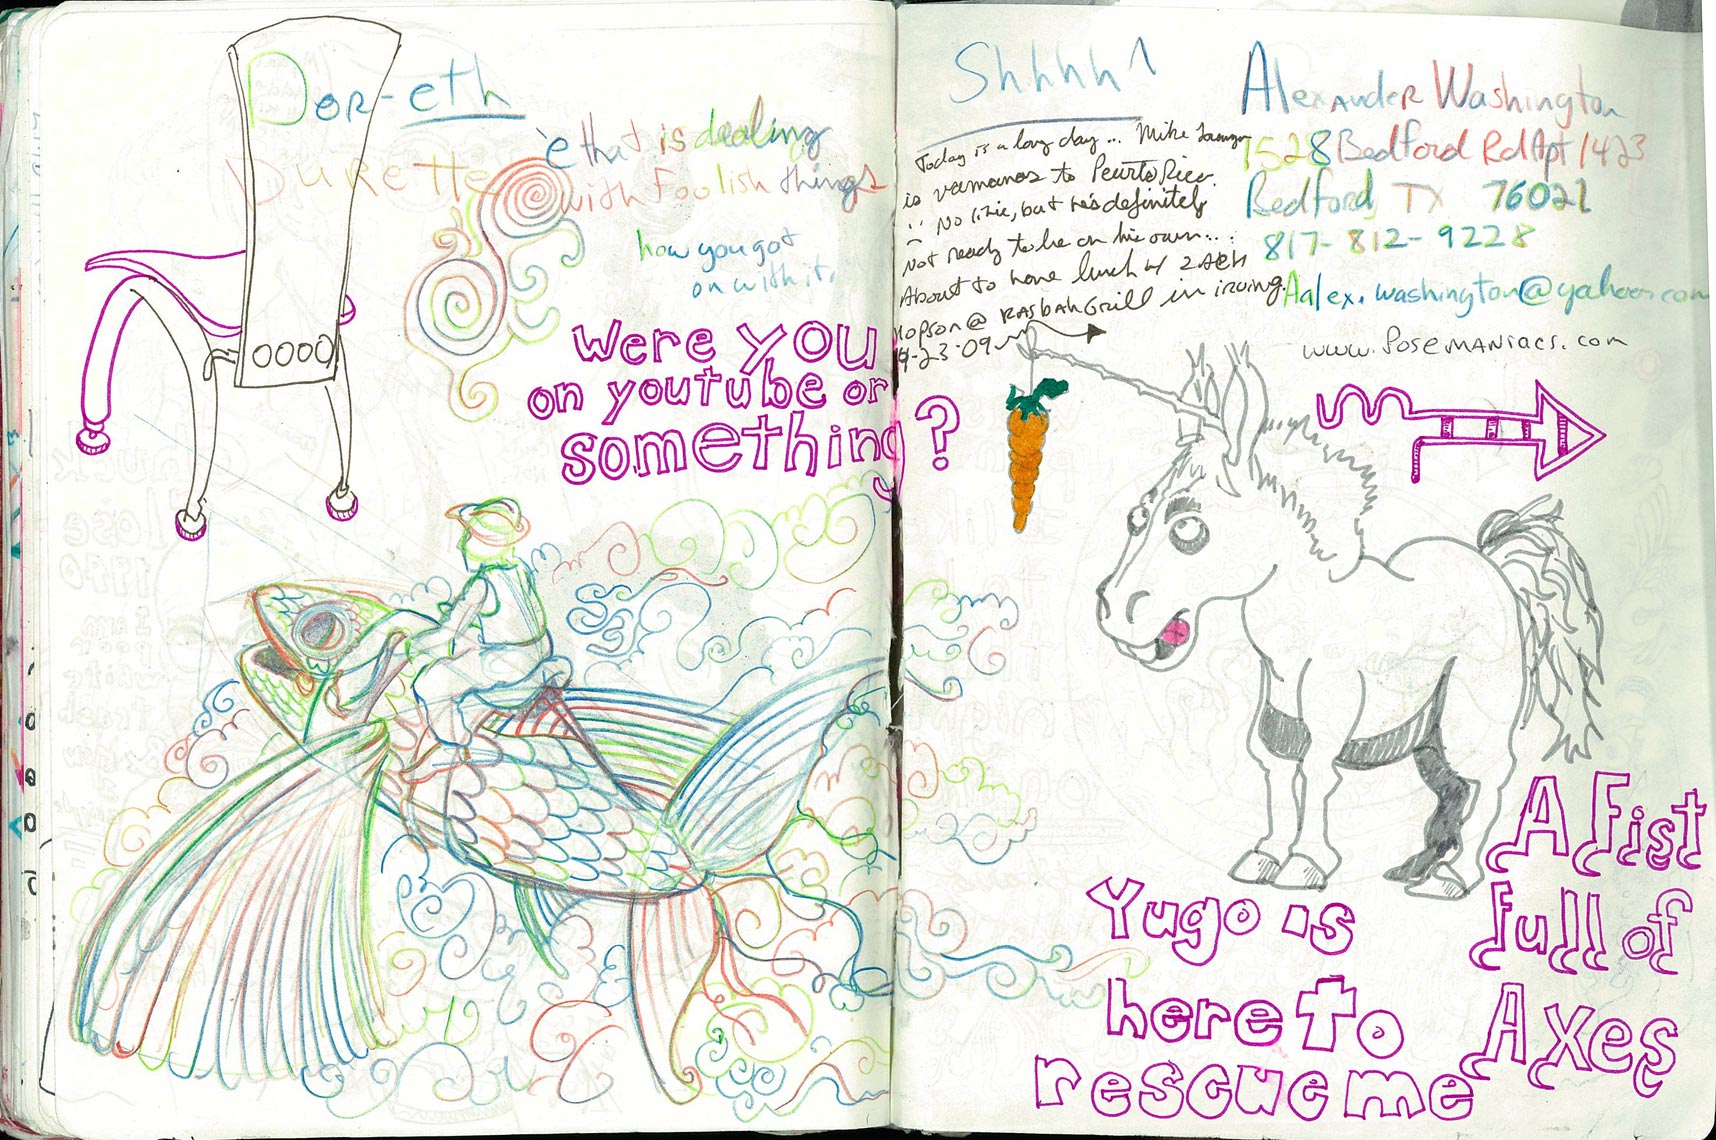 Dor-eth
Durette
e that is dealing
with foolish things
how you got
on with it.
were you
on youtube or
something?
Shhhh
Today is a long day... Mike
is vamanos to Peurto Rico.
No lie, but he's definitely
Not ready to be on his own...
About to have lunch w/ ZACH
Hopson @ RASBAH Grill in irving.
4-23-09
Alexander Washington
7528 Bedford Rd Apt 1423
Bedford, TX 76021
817-812-9228
Aalex.washington@yahoo.com
www.PoseMANiacs.com
A Fist
Full of
Axes
Yugo is
here to
rescue me